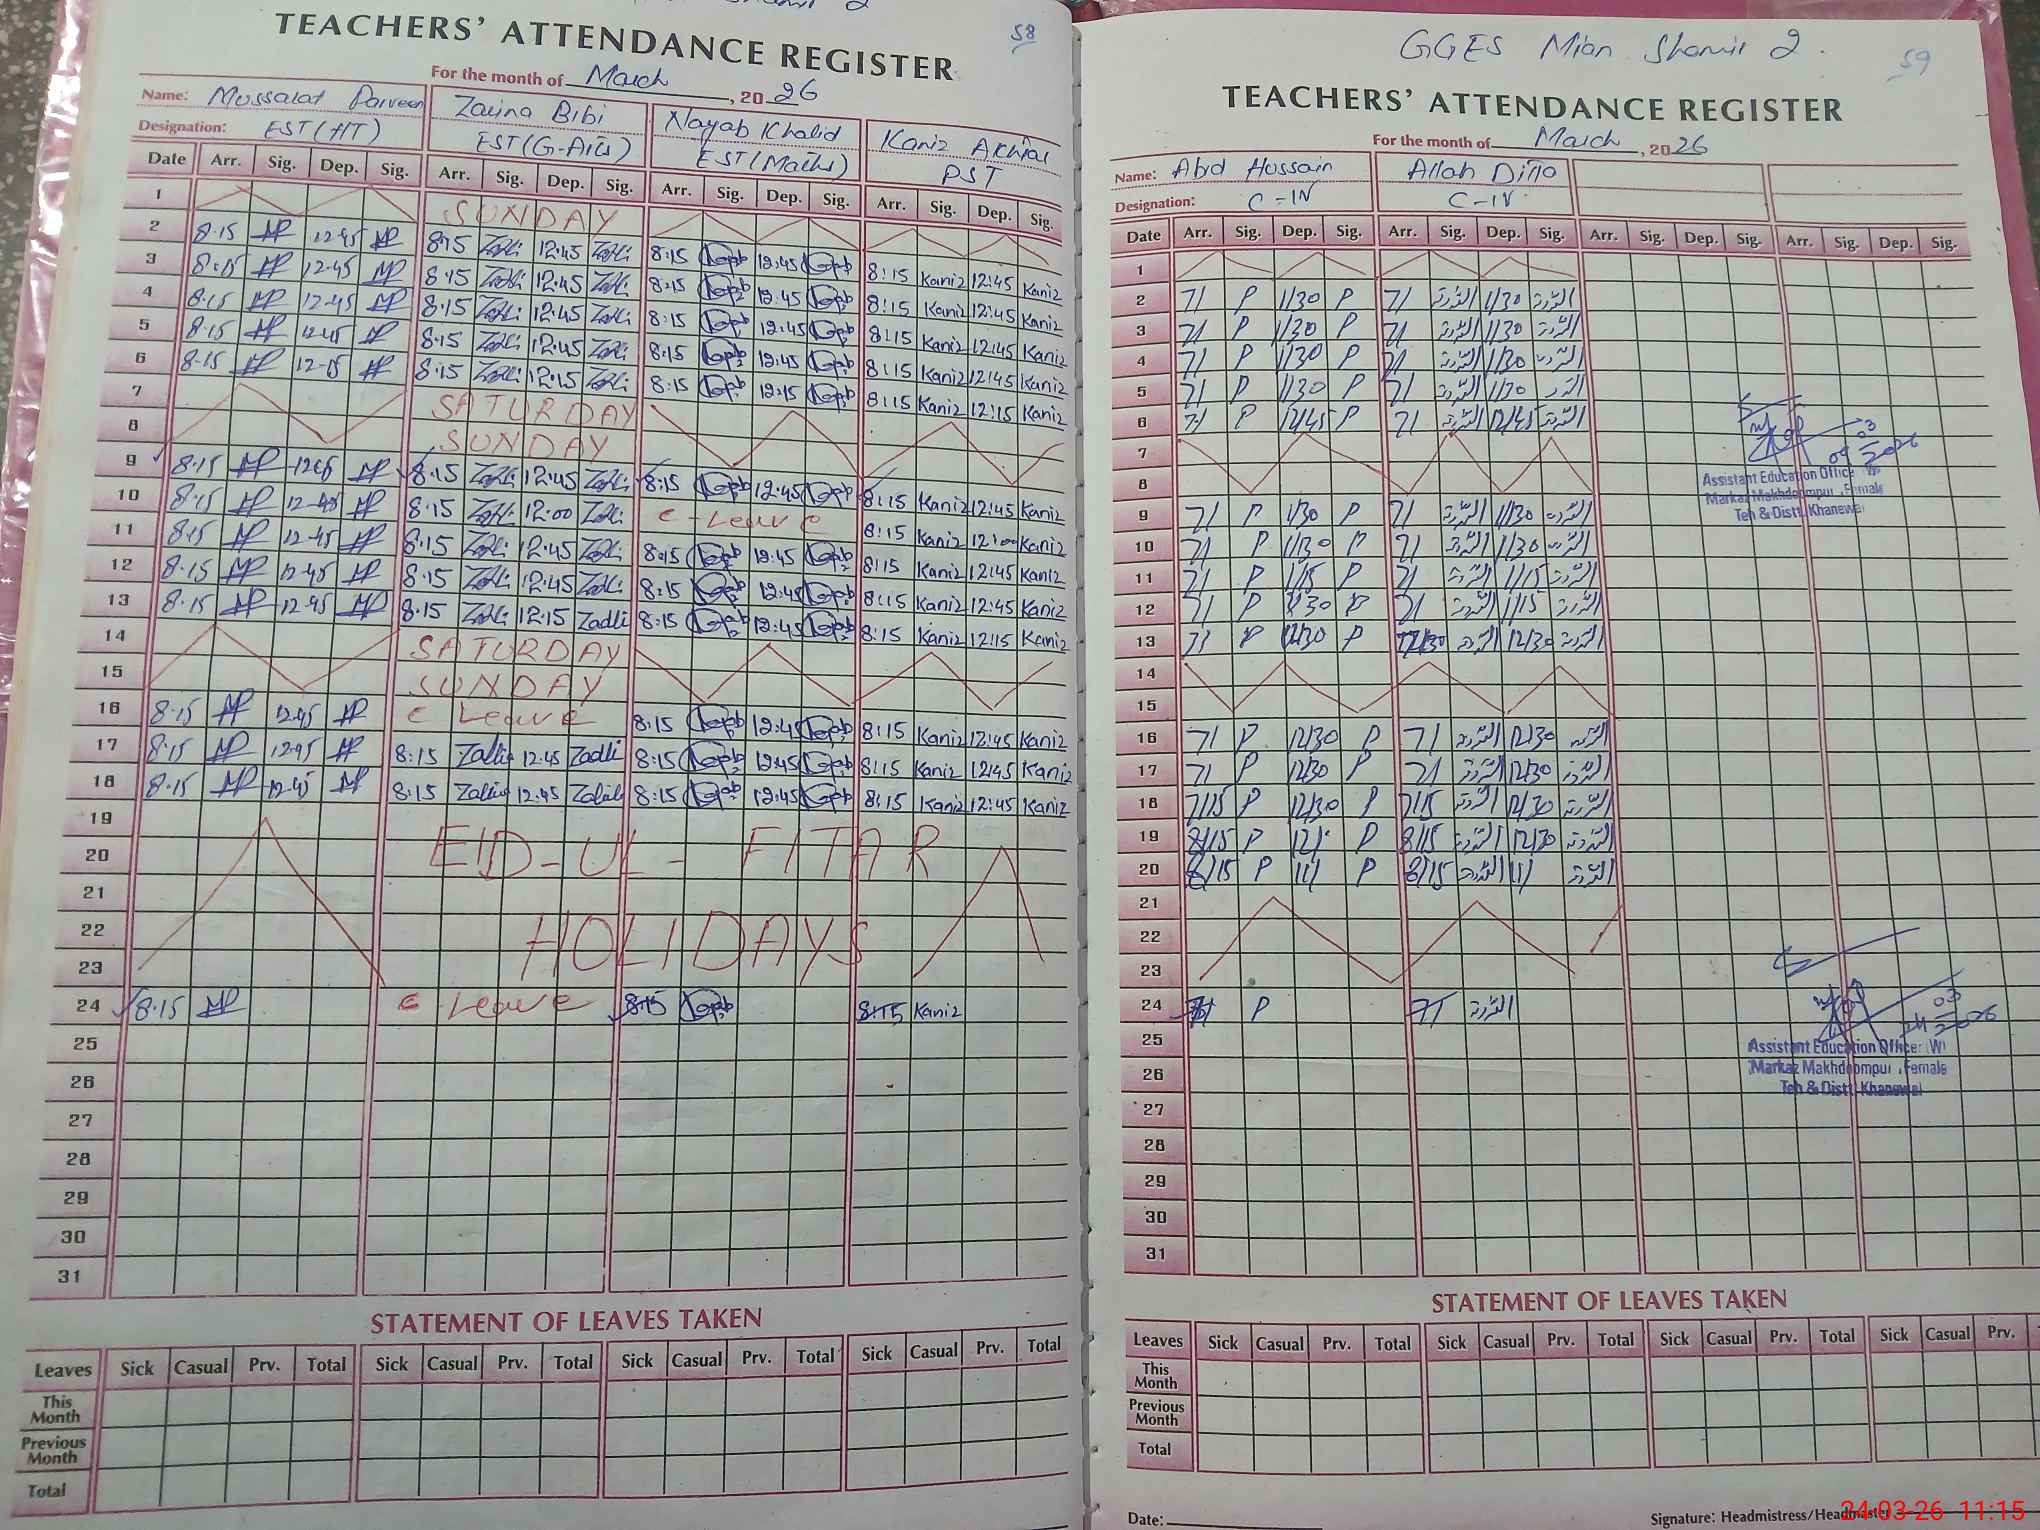 58
TEACHERS' ATTENDANCE REGISTER
For the month of March, 2026
Name: Mussarat Parveen Zarina Bibi Nayab Khalid Kaniz Akhtar
Designation: EST(HT) EST(G-Arts) EST(Maths) PST
Date Arr. Sig. Dep. Sig. Arr. Sig. Dep. Sig. Arr. Sig. Dep. Sig. Arr. Sig. Dep. Sig.
1 SUNDAY
2 8:15 12:45 8:15 12:45 8:15 12:45 8:15 Kaniz 12:45 Kaniz
3 8:15 12:45 8:15 12:45 8:15 12:45 8:15 Kaniz 12:45 Kaniz
4 8:15 12:45 8:15 12:45 8:15 12:45 8:15 Kaniz 12:45 Kaniz
5 8:15 12:45 8:15 12:45 8:15 12:45 8:15 Kaniz 12:45 Kaniz
6 8:15 12:15 8:15 12:15 8:15 12:15 8:15 Kaniz 12:15 Kaniz
7 SATURDAY
8 SUNDAY
9 8:15 8:15 12:45 8:15 12:45 8:15 Kaniz 12:45 Kaniz
10 8:15 12:45 8:15 12:00 C-Leave 8:15 Kaniz 12:00 Kaniz
11 8:15 12:45 8:15 12:45 8:15 12:45 8:15 Kaniz 12:45 Kaniz
12 8:15 12:45 8:15 12:45 8:15 12:45 8:15 Kaniz 12:45 Kaniz
13 8:15 12:45 8:15 12:15 8:15 12:45 8:15 Kaniz 12:15 Kaniz
14 SATURDAY
15 SUNDAY
16 8:15 12:45 C Leave 8:15 12:45 8:15 Kaniz 12:45 Kaniz
17 8:15 12:45 8:15 12:45 8:15 12:45 8:15 Kaniz 12:45 Kaniz
18 8:15 12:45 8:15 12:45 8:15 12:45 8:15 Kaniz 12:45 Kaniz
19
20 EID-UL-FITAR
21
22 HOLIDAYS
23
24 8:15 C-Leave 8:15 8:15 Kaniz
25
26
27
28
29
30
31
STATEMENT OF LEAVES TAKEN
Leaves Sick Casual Prv. Total Sick Casual Prv. Total Sick Casual Prv. Total Sick Casual Prv. Total
This Month
Previous Month
Total
GGES Mian Shamir 2.
59
TEACHERS' ATTENDANCE REGISTER
For the month of March, 2026
Name: Abid Hussain Allah Ditta
Designation: C-IV C-IV
Date Arr. Sig. Dep. Sig. Arr. Sig. Dep. Sig. Arr. Sig. Dep. Sig. Arr. Sig. Dep. Sig.
1
2 7/ P 1/30 P 7/ 1/30
3 7/ P 1/30 P 7/ 1/30
4 7/ P 1/30 P 7/ 1/30
5 7/ P 1/30 P 7/ 1/30
6 7/ P 12/45 P 7/ 12/45
7
8
9 7/ P 1/30 P 7/ 1/30
10 7/ P 1/30 P 7/ 1/30
11 7/ P 1/15 P 7/ 1/15
12 7/ P 1/30 P 7/ 1/15
13 7/ P 12/30 P 12/30
14
15
16 7/ P 12/30 P 7/ 12/30
17 7/ P 12/30 P 7/ 12/30
18 7/15 P 12/30 P 7/15 12/30
19 8/15 P 12/ P 8/15 12/30
20 8/15 P 11/ P 8/15 11/
21
22
23
24 P 7/
25
26
27
28
29
30
31
09 03 2026
Assistant Education Officer (W)
Markaz Makhdoompur, Female
Teh & Distt. Khanewal
24 03 2026
Assistant Education Officer (W)
Markaz Makhdoompur, Female
Teh & Distt. Khanewal
STATEMENT OF LEAVES TAKEN
Leaves Sick Casual Prv. Total Sick Casual Prv. Total Sick Casual Prv. Total Sick Casual Prv.
This Month
Previous Month
Total
Date: Signature: Headmistress/Headmaster
24-03-26 11:15